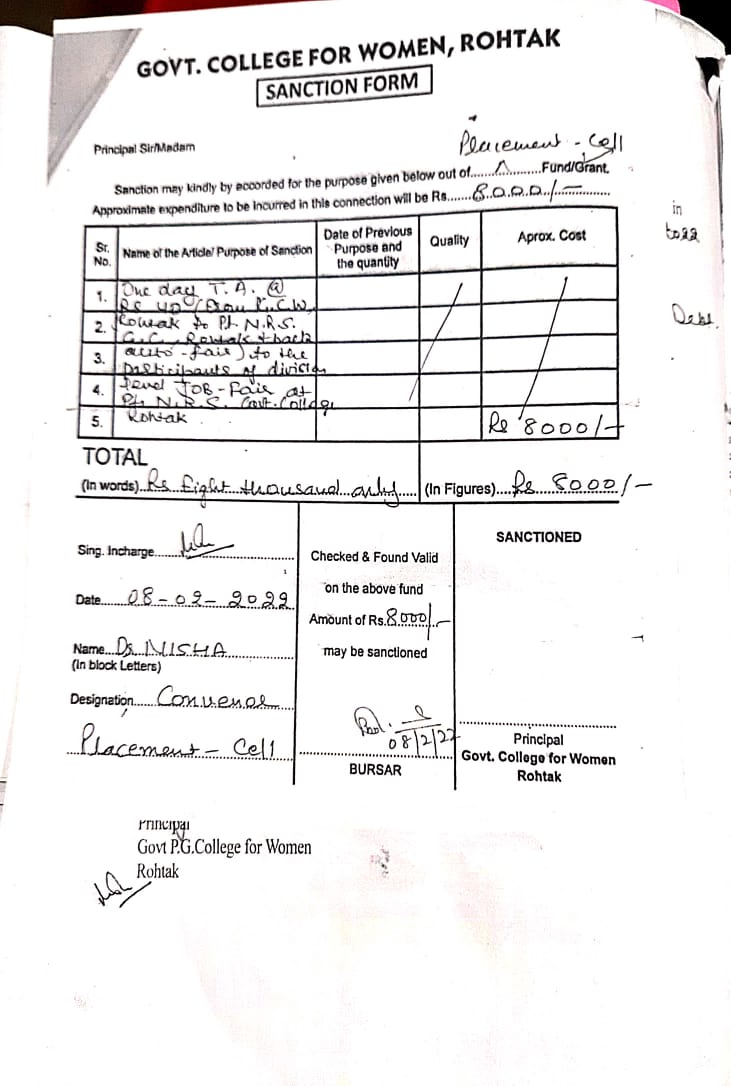 GOVT. COLLEGE FOR WOMEN, ROHTAK
SANCTION FORM
Principal Sir/Madam
Placement - Cell
Sanction may kindly by accorded for the purpose given below out of.......^.........Fund/Grant.
Approximate expenditure to be incurred in this connection will be Rs.......8000/-............
in
to22
Debt
Sr. No. Name of the Article/ Purpose of Sanction Date of Previous Purpose and the quantity Quality Aprox. Cost
1. One day T.A. @
Rs 40/ (from G.C.W,
2. Rohtak to Pt. N.R.S.
G.C. Rohtak & back
3. auto-fair) to the
participants of division
4. level JOB-Fair at
Pt. N.R.S. Govt. College
5. Rohtak Rs 8000/-
TOTAL
(In words)..Rs Eight thousand only..... (In Figures)....Rs 8000/-
Sing. Incharge
Date.....08-02-2022
Name...Dr NISHA
(In block Letters)
Designation......Convenor
Placement - Cell
Checked & Found Valid
on the above fund
Amount of Rs.8000/-
may be sanctioned
08/2/22
BURSAR
SANCTIONED
Principal
Govt. College for Women
Rohtak
Principal
Govt P.G.College for Women
Rohtak